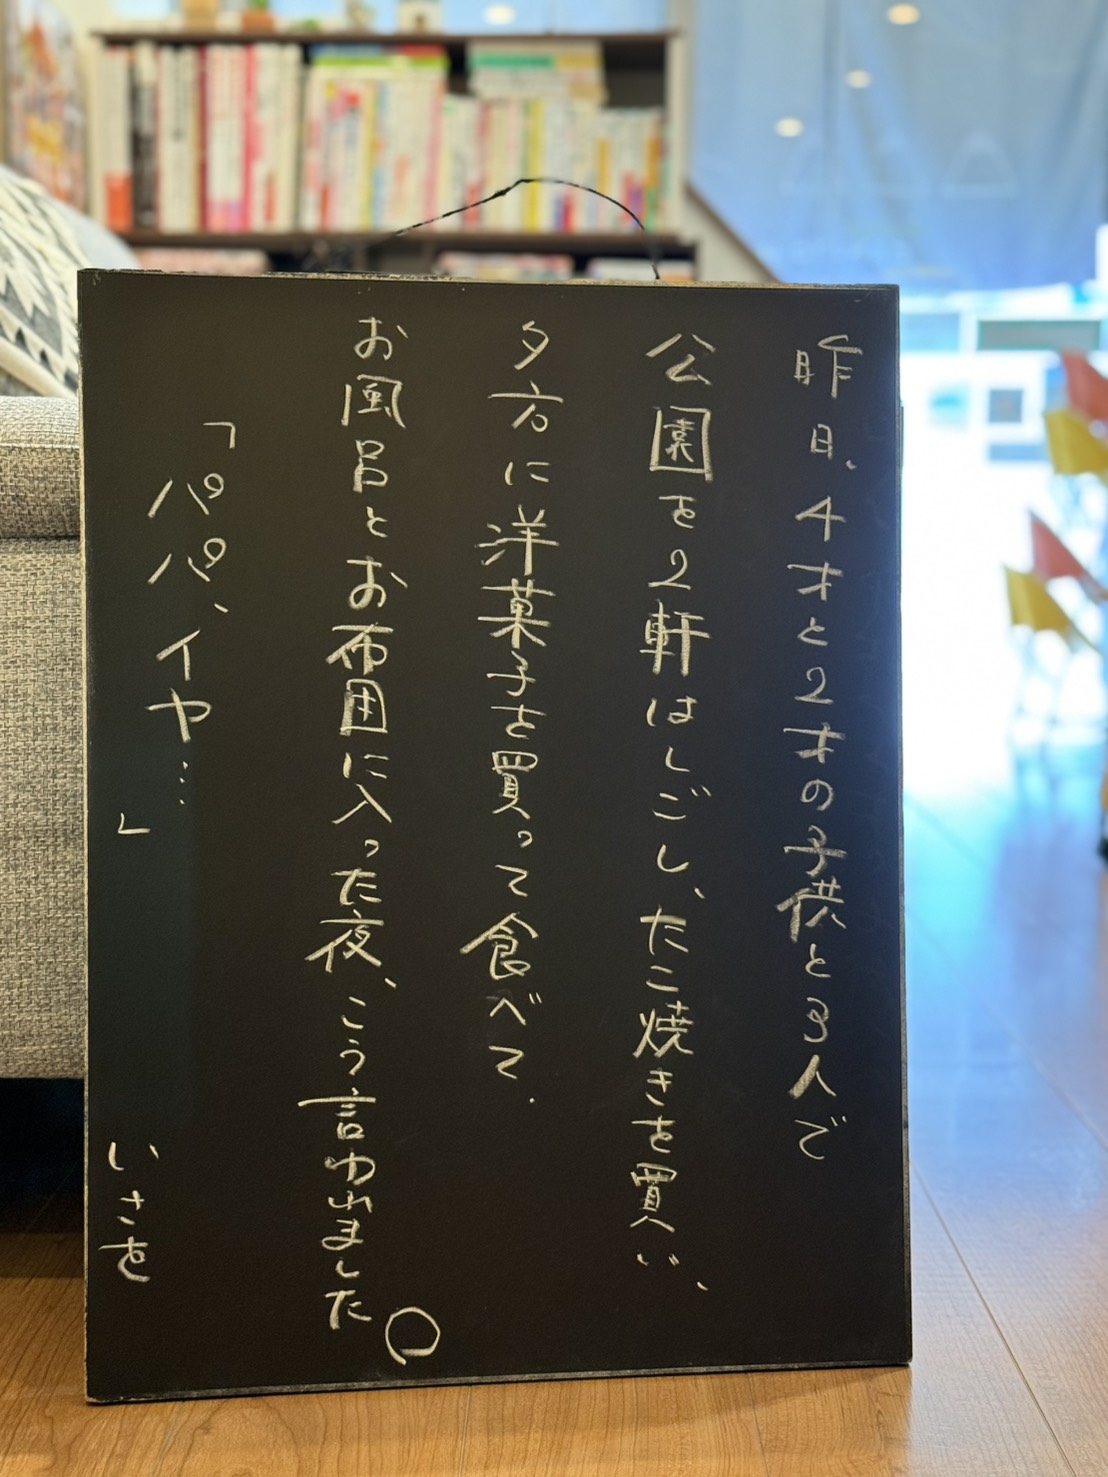 昨日、4才と2才の子供と3人で
公園を2軒はしごし、たこ焼きを買い、
夕方に洋菓子を買って食べて、
お風呂とお布団に入った夜、こう言われました。
「パパ、イヤ…」
いさを